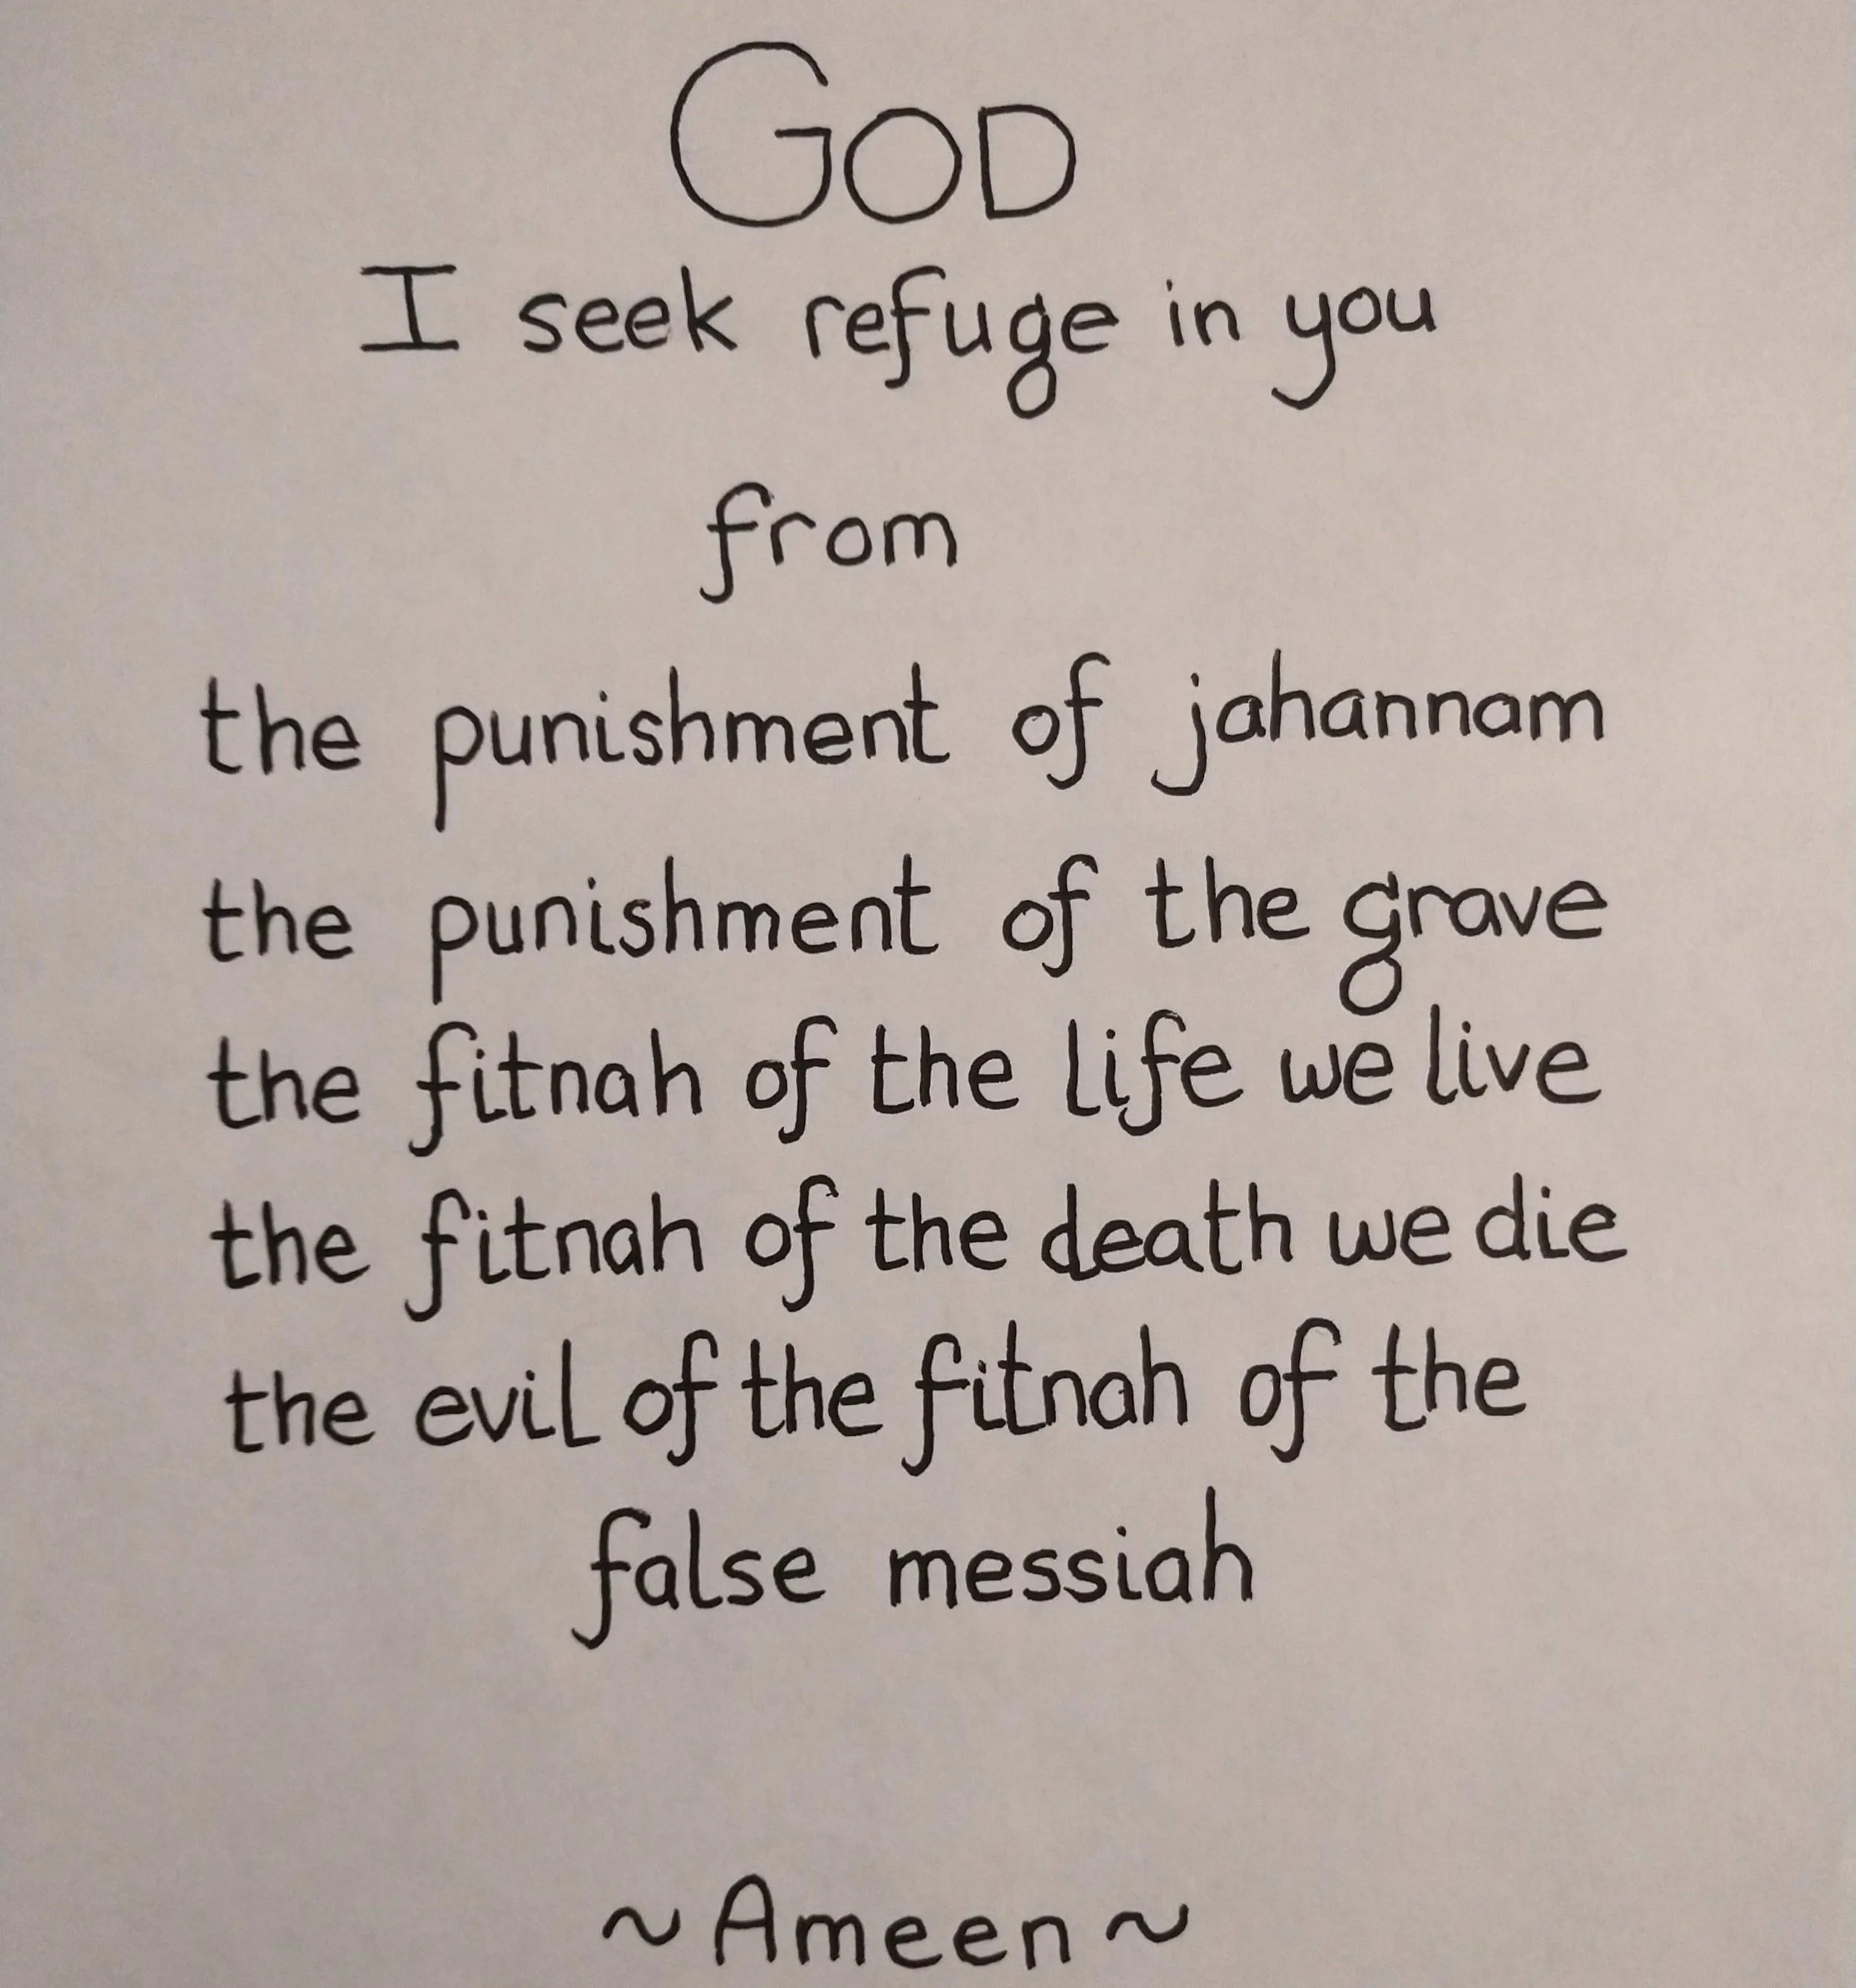 GOD
I seek refuge in you
from
the punishment of jahannam
the punishment of the grave
the fitnah of the life we live
the fitnah of the death we die
the evil of the fitnah of the
false messiah
~Ameen~